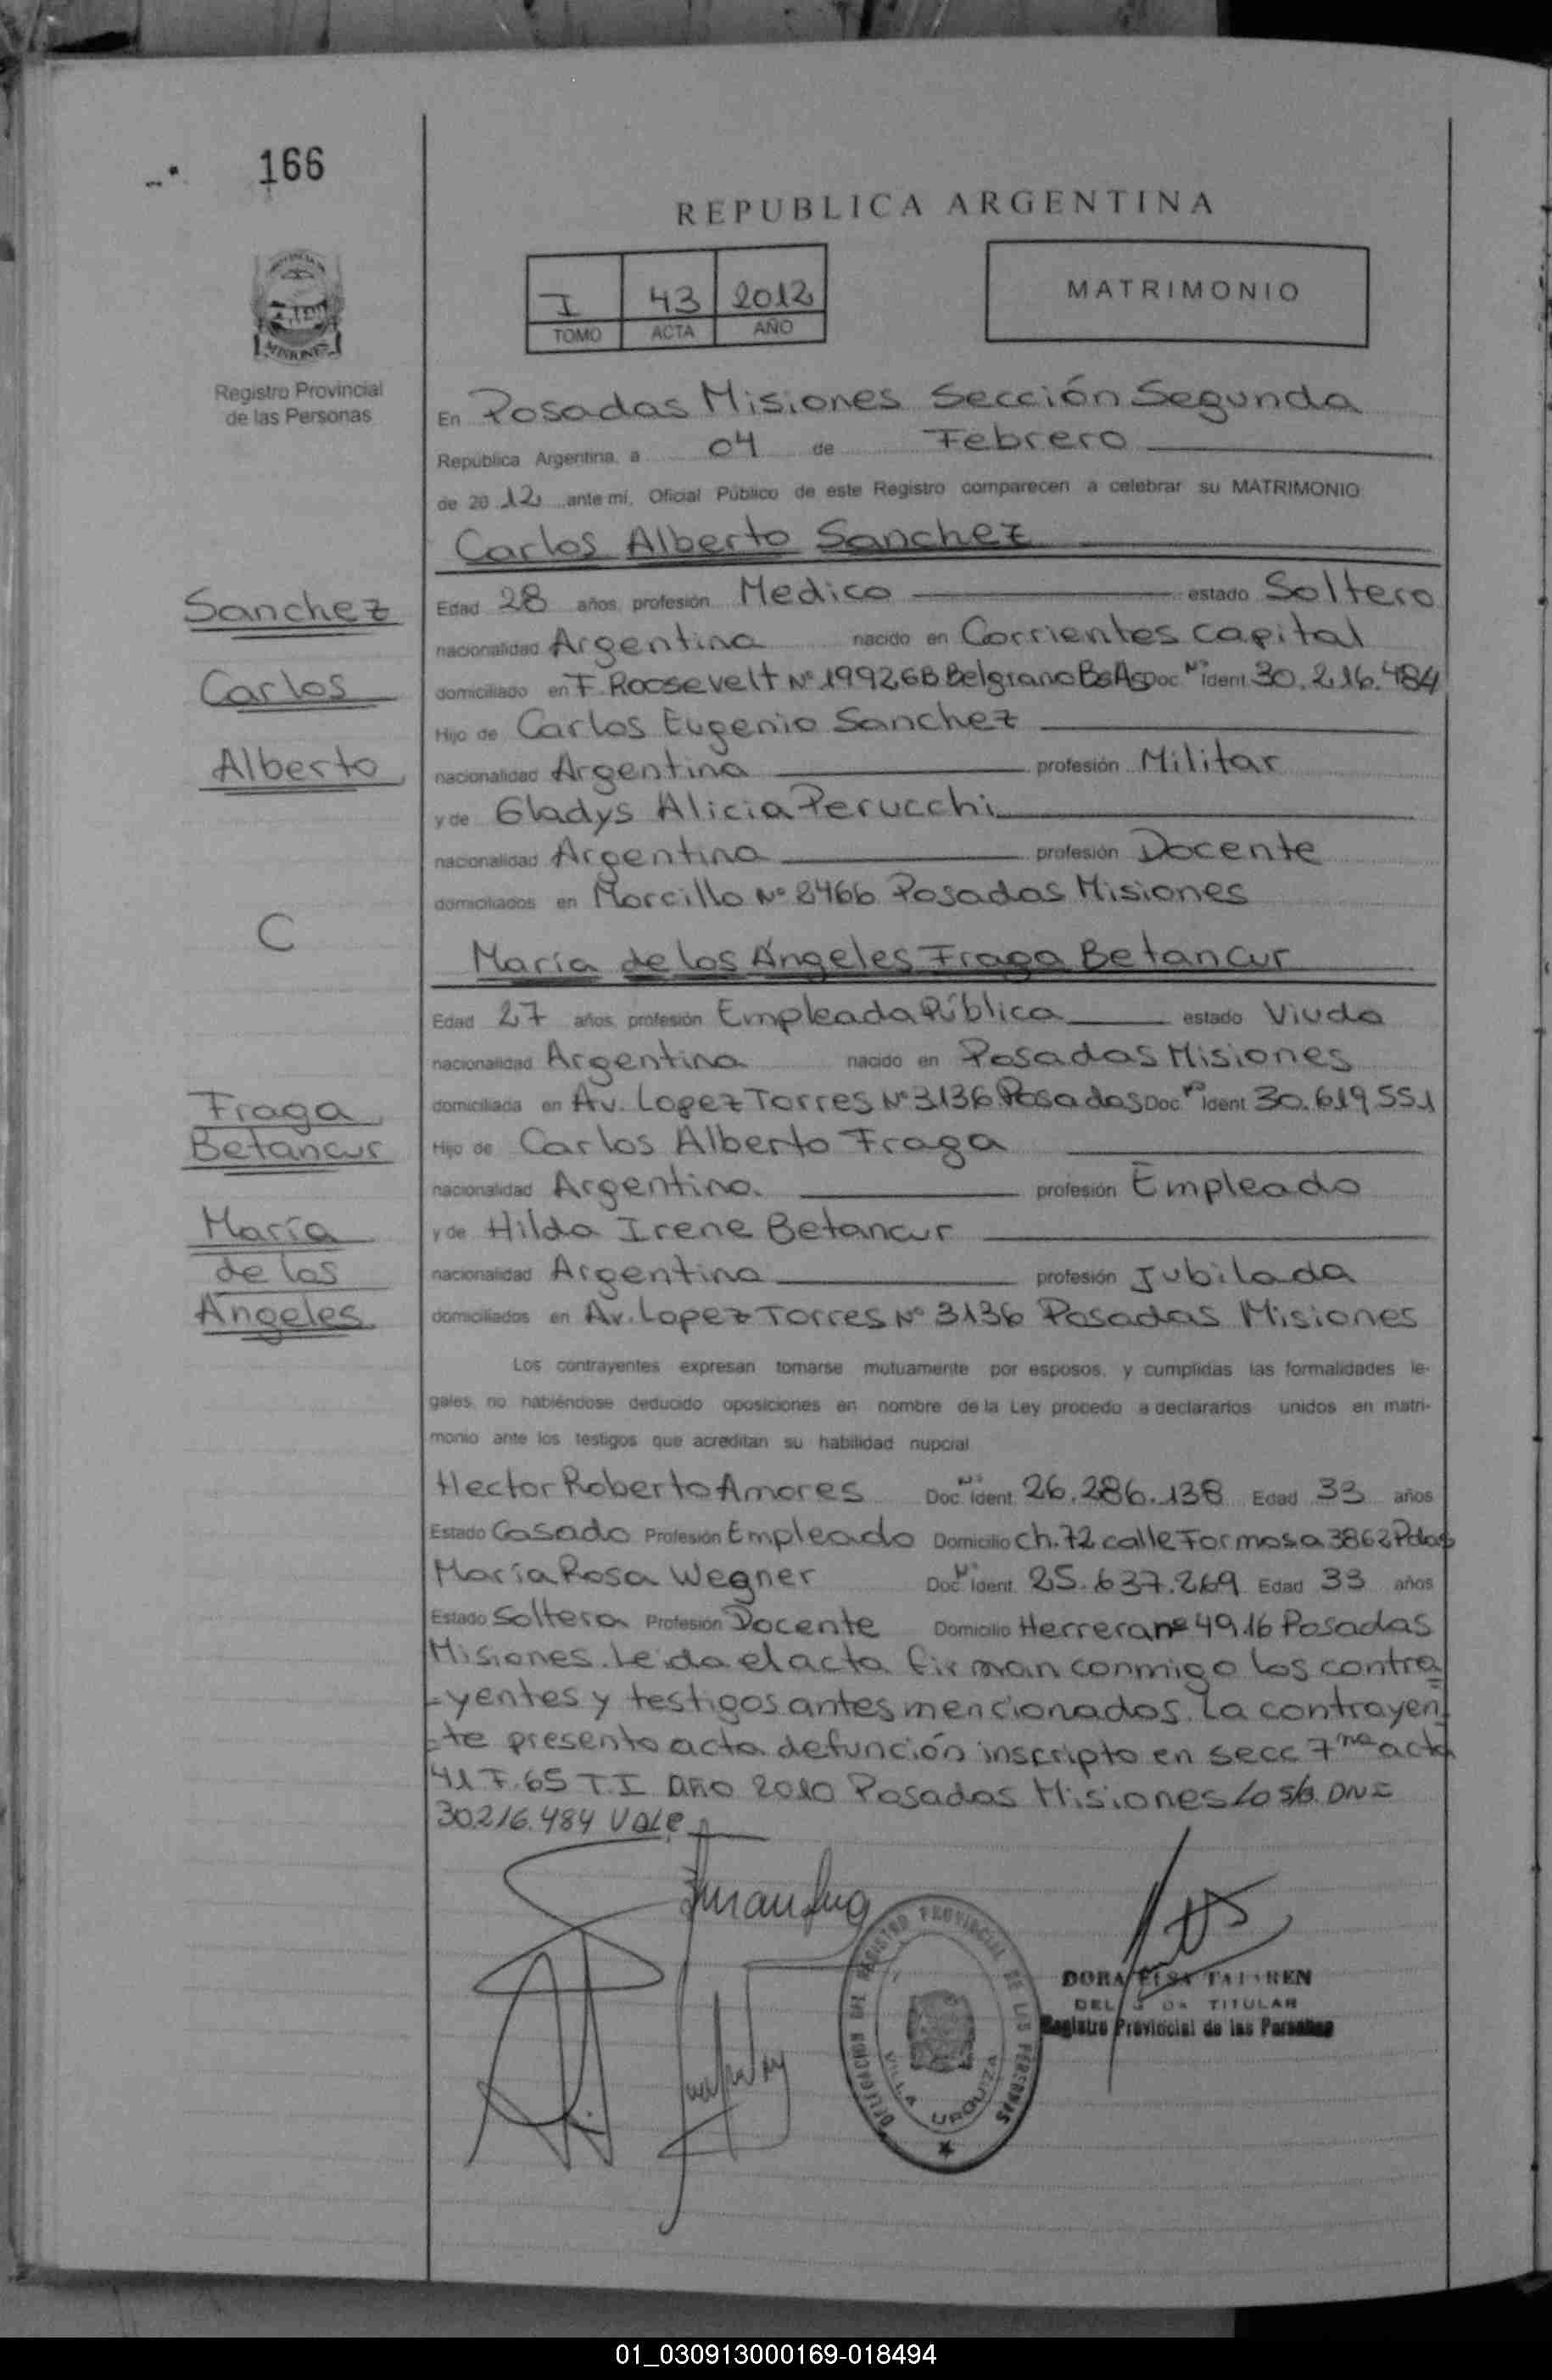 166
REPUBLICA ARGENTINA
I 43 2012
TOMO ACTA AÑO
MATRIMONIO
PROVINCIA DE
MISIONES
Registro Provincial
de las Personas
En Posadas Misiones Sección Segunda
República Argentina, a 04 de Febrero
de 2012 ante mí, Oficial Público de este Registro comparecen a celebrar su MATRIMONIO
Carlos Alberto Sanchez
Sanchez
Carlos
Alberto
Edad 28 años, profesión Medico estado Soltero
nacionalidad Argentina nacido en Corrientes capital
domiciliado en F. Roosevelt Nº 1992 6B Belgrano Bs As Doc. Nº Ident. 30.216.484
Hijo de Carlos Eugenio Sanchez
nacionalidad Argentina profesión Militar
y de Gladys Alicia Perucchi
nacionalidad Argentina profesión Docente
domiciliados en Morcillo Nº 2466 Posadas Misiones
C
María de los Ángeles Fraga Betancur
Edad 27 años, profesión Empleada Pública estado Viuda
nacionalidad Argentina nacido en Posadas Misiones
domiciliada en Av. Lopez Torres Nº 3136 Posadas Doc. Nº Ident. 30.619.551
Hijo de Carlos Alberto Fraga
nacionalidad Argentina. profesión Empleado
y de Hilda Irene Betancur
nacionalidad Argentina profesión Jubilada
domiciliados en Av. Lopez Torres Nº 3136 Posadas Misiones
Fraga
Betancur
María
de los
Angeles
Los contrayentes expresan tomarse mutuamente por esposos, y cumplidas las formalidades le-
gales, no habiéndose deducido oposiciones en nombre de la Ley procedo a declararlos unidos en matri-
monio ante los testigos que acreditan su habilidad nupcial
Hector Roberto Amores Doc. Nº Ident. 26.286.138 Edad 33 años
Estado Casado Profesión Empleado Domicilio Ch. 72 calle Formosa 3862 Pdas
María Rosa Wegner Doc. Nº Ident. 25.637.269 Edad 33 años
Estado Soltera Profesión Docente Domicilio Herrera nº 4916 Posadas
Misiones. Leida el acta firman conmigo los contra
-yentes y testigos antes mencionados. La contrayen
-te presento acta defunción inscripto en secc 7ma acta
41 F. 65 T. I Año 2010 Posadas Misiones Lo s/b. DNI
30.216.484 Vale
DELEGACION DEL REGISTRO PROVINCIAL DE LAS PERSONAS
VILLA URQUIZA
DORA ELSA
TITULAR
Registro Provincial de las Personas
01_030913000169-018494